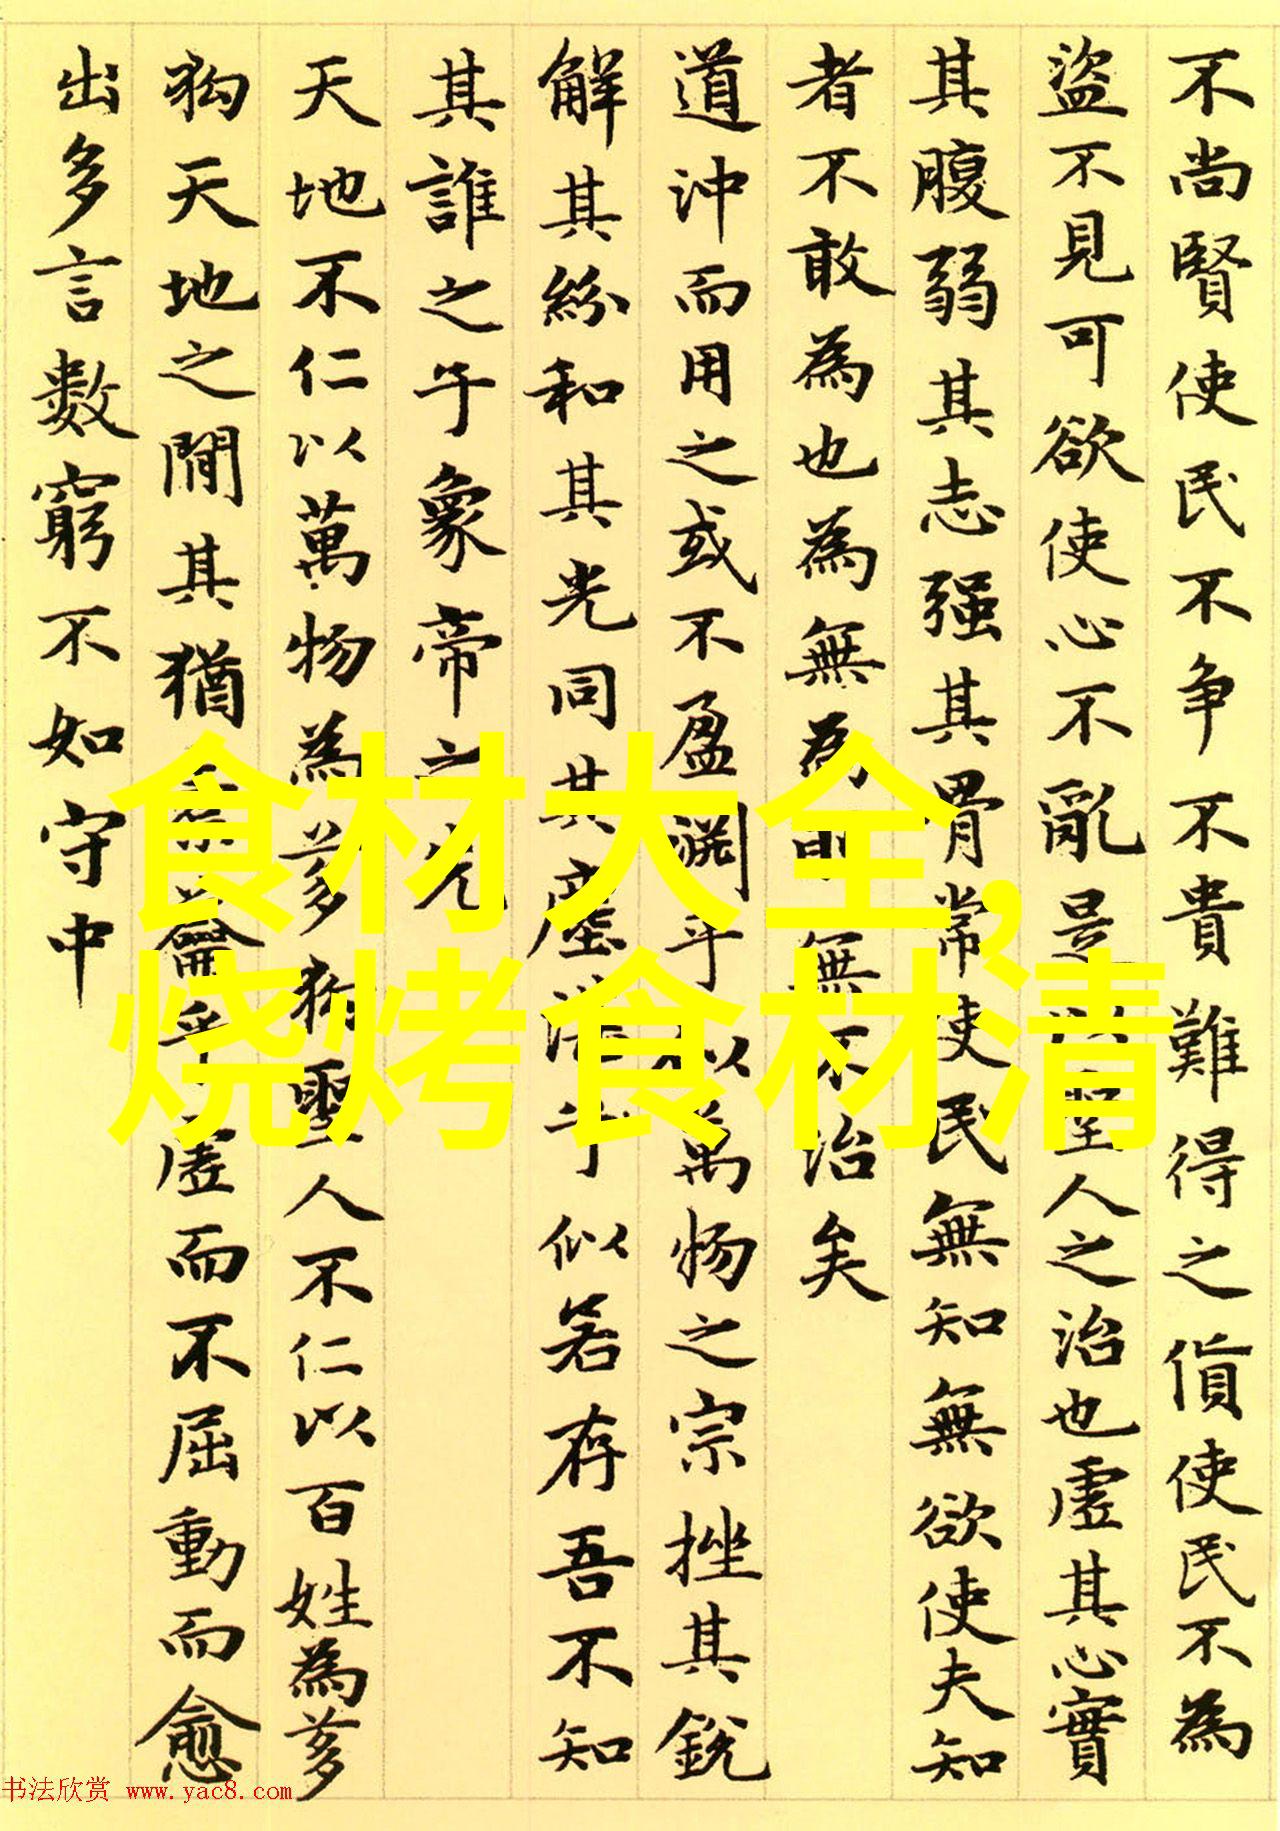 不尚賢使民不争不貴難得之貨使民不為
盜不見可欲使心不亂是以聖人之治也虛其心實
其腹弱其志强其骨常使民無知無欲使夫知
者不敢為也為無為則無不治矣
道沖而用之或不盈淵乎似萬物之宗挫其銳
解其紛和其光同其塵湛乎似若存吾不知
其誰之子象帝之先
天地不仁以萬物為芻狗聖人不仁以百姓為芻
狗天地之間其猶橐籥乎虛而不屈動而愈
出多言數窮不如守中
食材大全,
烧烤食材清
书法欣赏 www.yac8.com